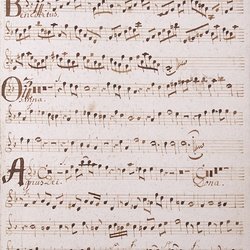 Benedictus
Osanna
Agnus Dei
Dona